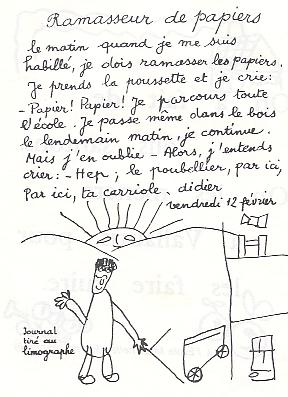 Ramasseur de papiers
le matin quand je me suis
habillé, je dois ramasser les papiers.
Je prends la poussette et je crie:
- Papier! Papier! Je parcours toute
l'école. Je passe même dans le bois
le lendemain matin, je continue.
Mais j'en oublie - Alors, j'entends
crier: - Hep; le poubellier, par ici,
Par ici, ta carriole. didier
vendredi 12 février
Journal
tiré au
limographe